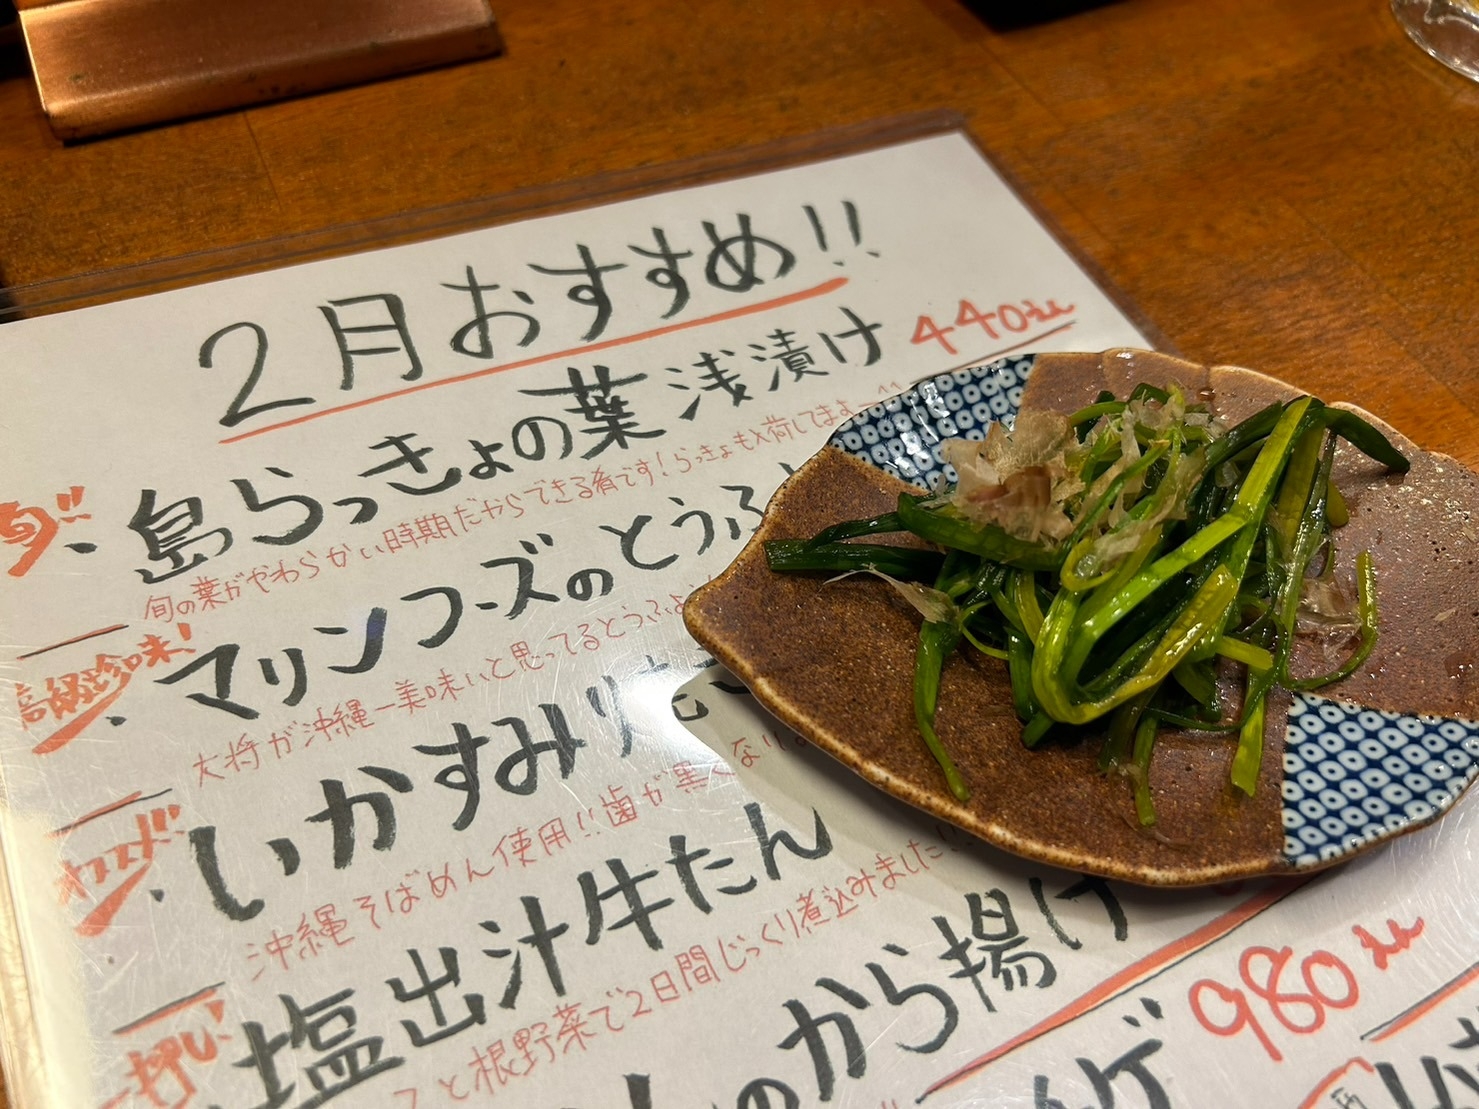 2月おすすめ!!
旬!! ・島らっきょの葉 浅漬け 440えん
旬の葉がやわらかい時期だからできる肴です！らっきょも入荷してまよー^^
高級珍味! ・マリンフーズのとうふ
大将が沖縄一美味いと思ってるとうふよ
オススメ!! ・いかすみ
沖縄そばめん使用!!歯が黒くなり
一押し! 塩出汁牛たん
と根野菜で2日間じっくり煮込みました
のから揚げ
980えん